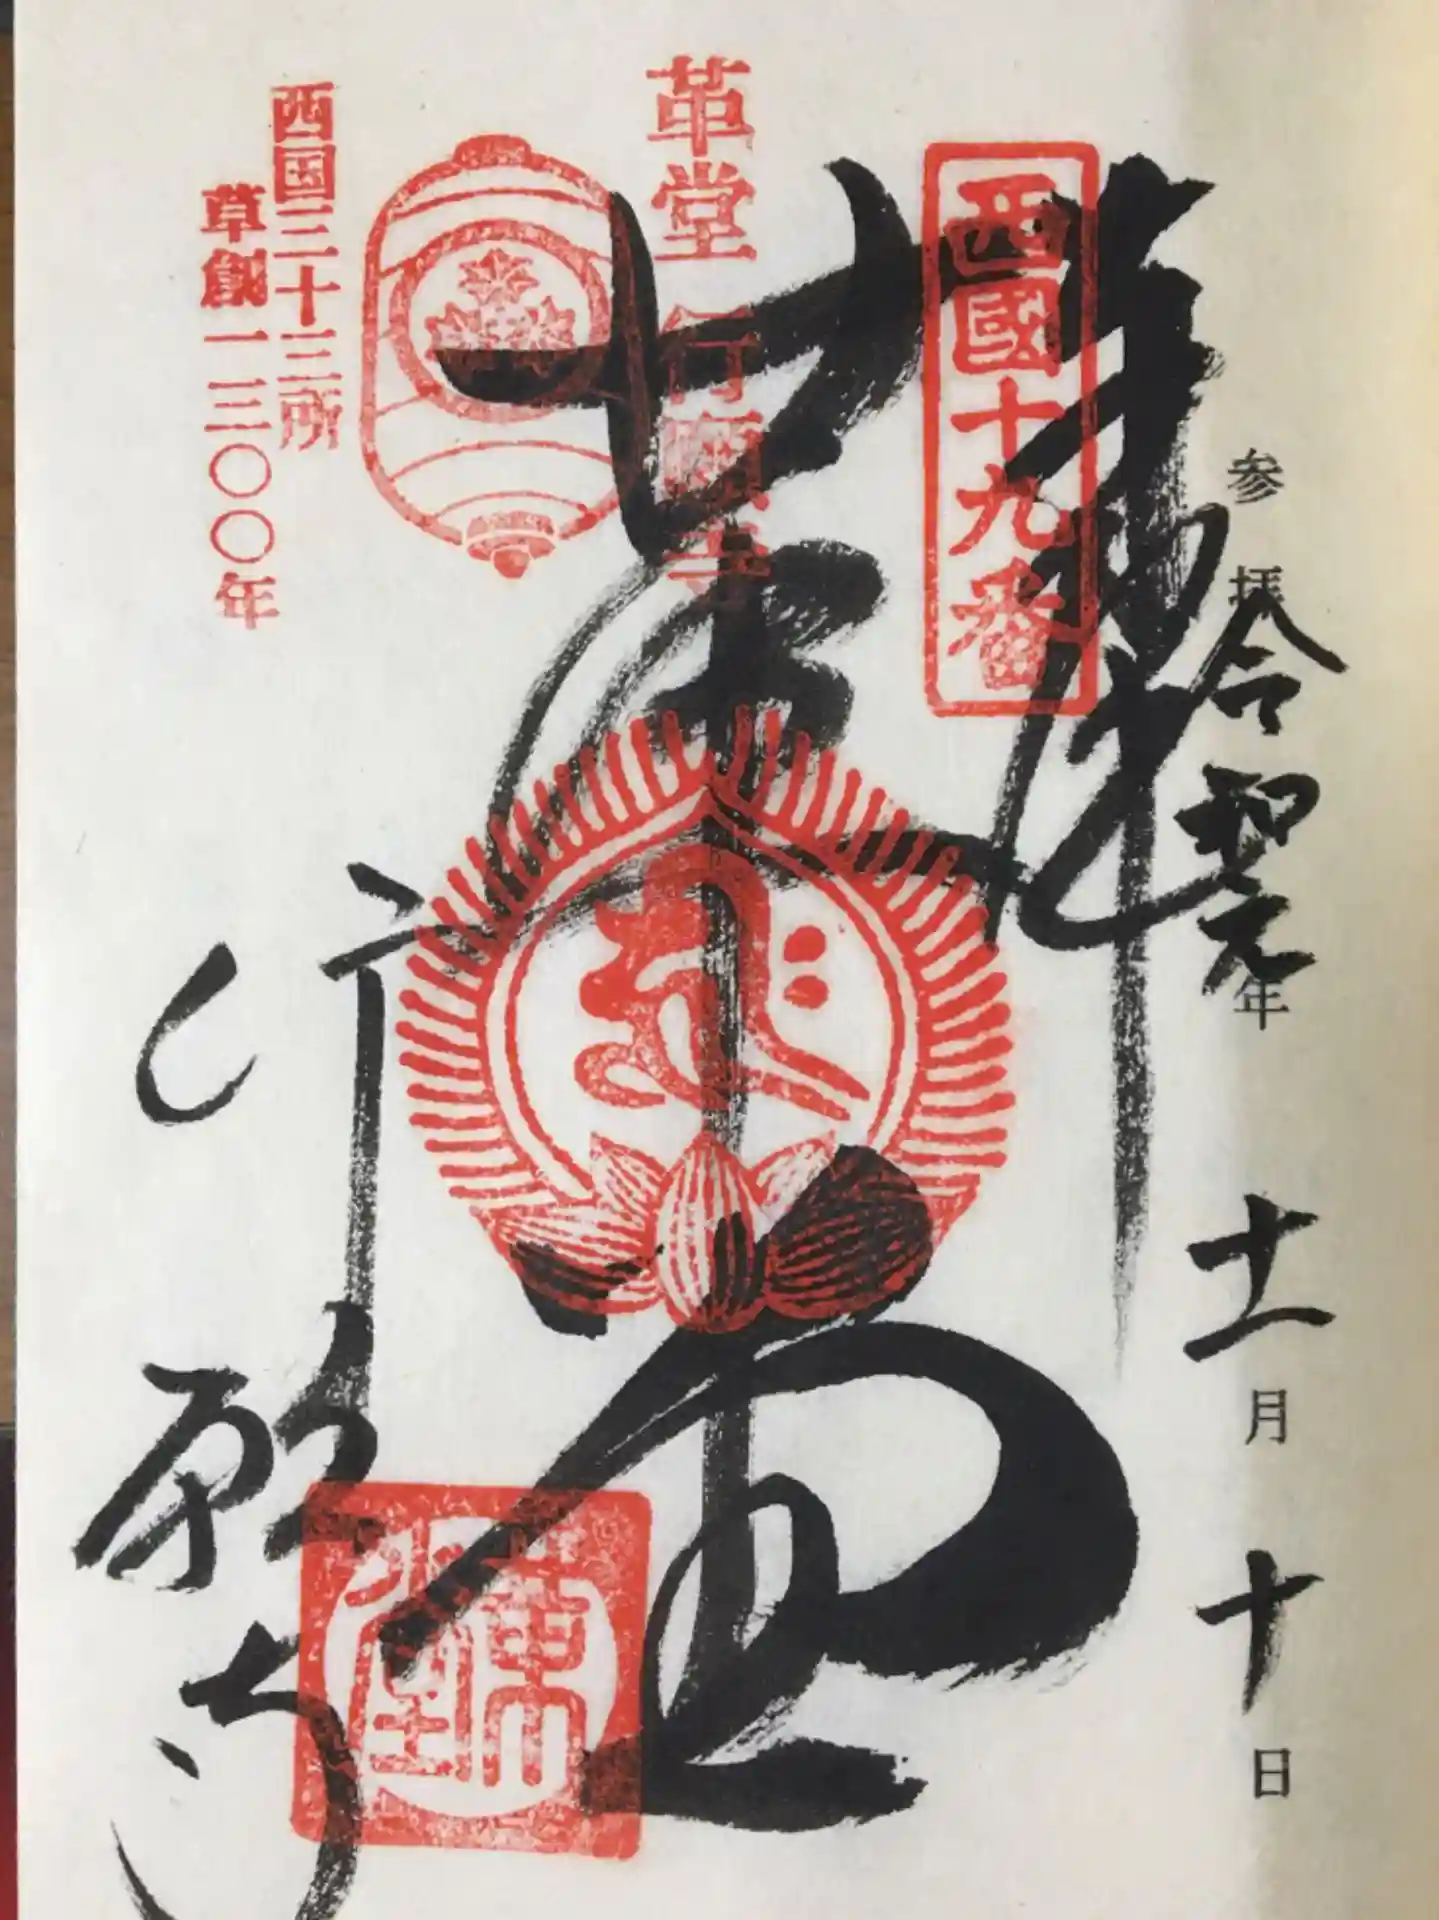 参拝 令和元年 十一月 十日
奉拝
西國十九番
革堂
革堂 行願寺
西国三十三所
草創一三〇〇年
行願寺
革堂